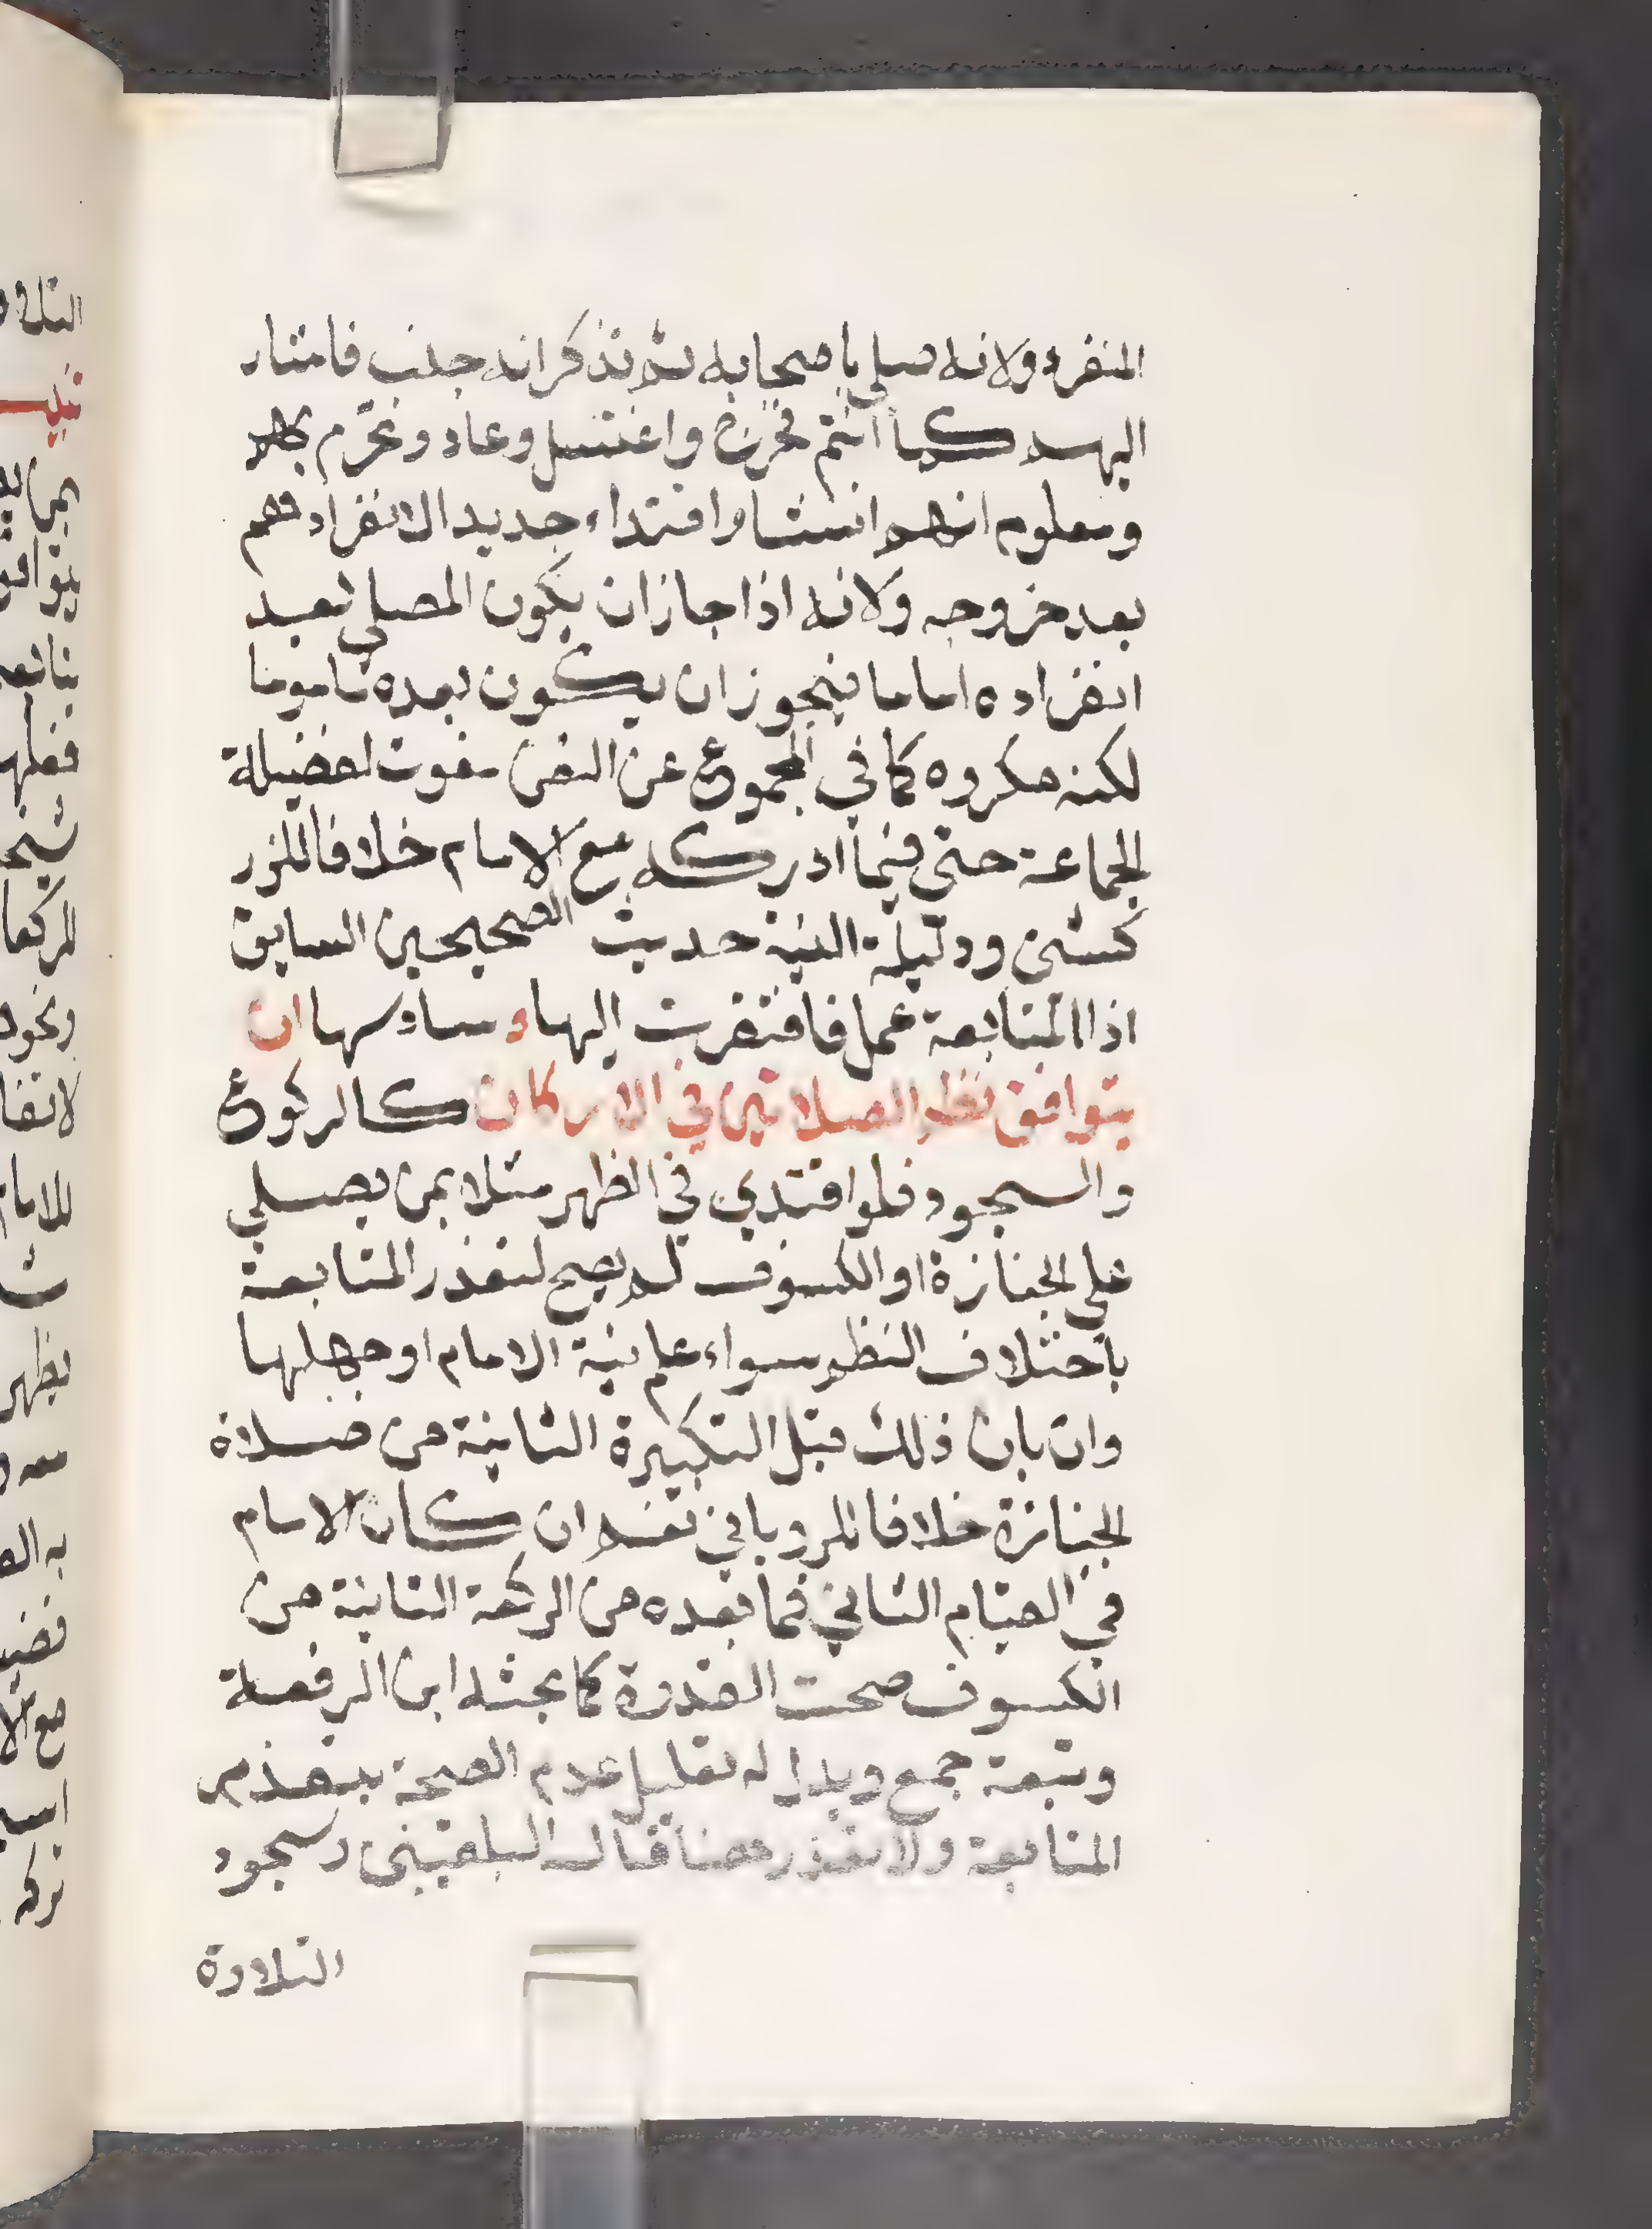 المنفرد ولانه صلى باصحابه ثم تذكر انه جنب فاشار
اليهم كما انتم فخرج واغتسل وعاد وتحرم بهم
ومعلوم انهم انشاوا اقتداء جديدا لانفرادهم
بعد خروجه ولانه اذا جاز ان يكون المصلي بعد
انفراده اماما فيجوز ان يكون بعده ماموما
لكنه مكروه كما في المجموع عن النص مفوت لفضيلة
الجماعة حتى فيما ادركه مع الامام خلافا للزر
كشي ودليله النية حديث الصحيحين السابق
اذ المتابعة عمل فافتقرت اليها وسادسها ان
يتوافق نظم الصلاتين في الاركان كالركوع
والسجود فلو اقتدي في الظهر مثلا بمن يصلي
على الجنازة او الكسوف لم يصح لتعذر المتابعة
باختلاف النظم سواء علم نية الامام او جهلها
وان بان ذلك قبل التكبيرة الثانية من صلاة
الجنازة خلافا للروياني نعم ان كان الامام
في القيام الثاني فما بعده من الركعة الثانية من
الكسوف صحت القدوة كما بحثه ابن الرفعة
وتبعه جمع ويدل له تعليل عدم الصحة بتعذر
المتابعة ولا تعذر هنا قال البلقيني وسجود
التلاوة